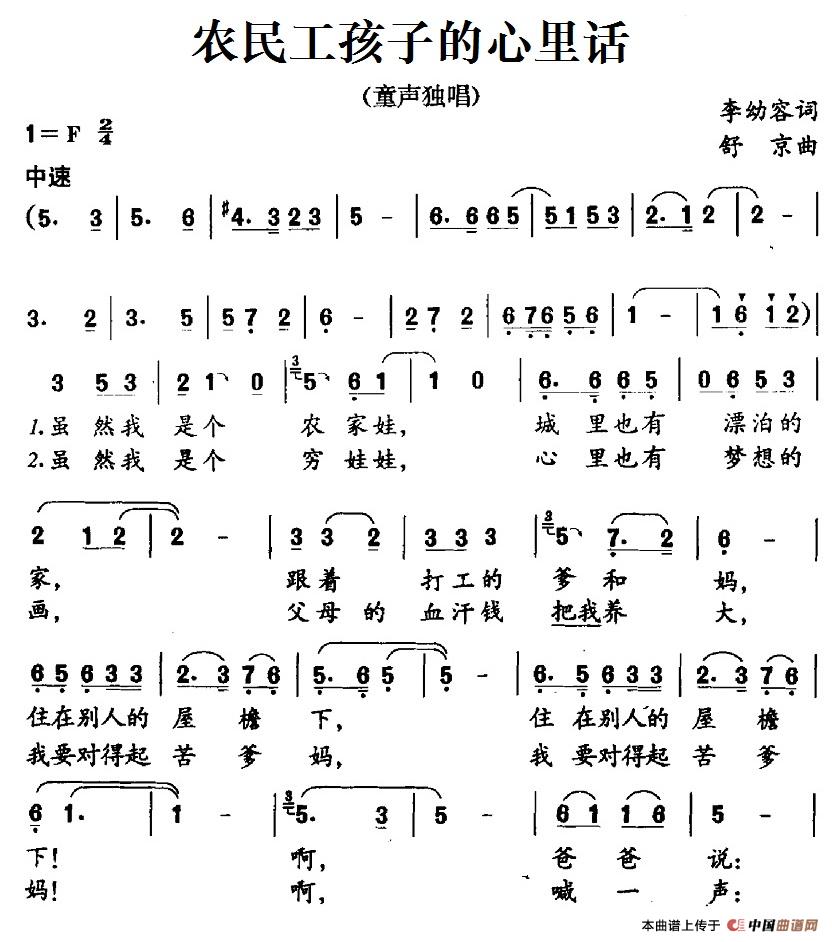 农民工孩子的心里话
(童声独唱)
李幼容词
1=F 2/4
舒 京曲
中速
(5. 3 | 5. 6 | #4. 3 2 3 | 5 - | 6. 6 6 5 | 5 1 5 3 | 2. 1 2 | 2 - |
3. 2 | 3. 5 | 5 7 2 | 6 - | 2 7 2 | 6 7 6 5 6 | 1 - | 1 6 1 2) |
3 5 3 | 2 1 0 | 3 5 6 1 | 1 0 | 6. 6 6 5 | 0 6 5 3 |
1.虽 然我 是个 农 家娃, 城 里也有 漂泊的
2.虽 然我 是个 穷 娃娃, 心 里也有 梦想的
2 1 2 | 2 - | 3 3 2 | 3 3 3 | 3 5 7. 2 | 6 - |
家, 跟着 打工的 爹 和 妈,
画, 父母 的 血汗钱 把我养 大,
6 5 6 3 3 | 2. 3 7 6 | 5. 6 5 | 5 - | 6. 5 6 3 3 | 2. 3 7 6 |
住在别人的 屋 檐 下, 住 在别人的 屋 檐
我要对得起 苦 爹 妈, 我 要对得起 苦 爹
6 1. | 1 - | 3 5. 3 | 5 - | 6 1 1 6 | 5 - |
下! 啊, 爸 爸 说:
妈! 啊, 喊 一 声:
本曲谱上传于 中国曲谱网